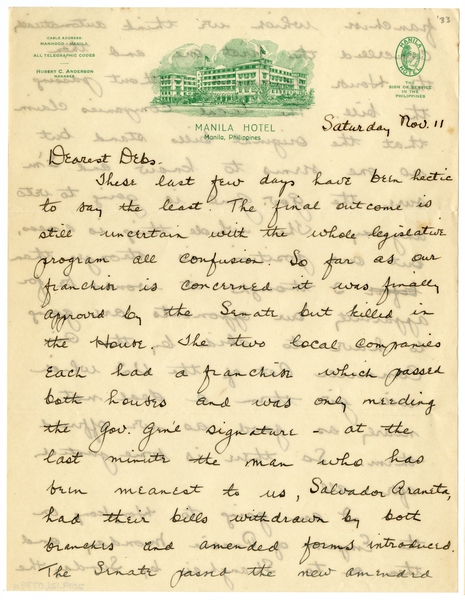 CABLE ADDRESS
MANHOCO - MANILA
ALL TELEGRAPHIC CODES
HUBERT C. ANDERSON
MANAGER
MANILA HOTEL
Manila, Philippines
MANILA HOTEL
THE SIGN OF SERVICE IN THE PHILIPPINES
'33
Saturday Nov. 11
Dearest Debs.
These last few days have been hectic
to say the least The final outcome is
still uncertain with the whole legislative
program all confusion. So far as our
franchise is concerned it was finally
approved by the Senate but killed in
the House. The two local companies
each had a franchise which passed
both houses and was only needing
the Gov. Gen'l signature - at the
last minute the man who has
been meanest to us, Salvador Araneta,
had their bills withdrawn by both
branches and amended forms introduced.
The Senate passed the new amended